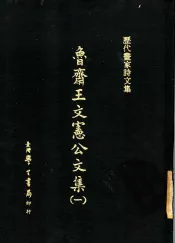 歷代畫家詩文集
魯齋王文憲公文集
(一)
臺灣學生書局印行